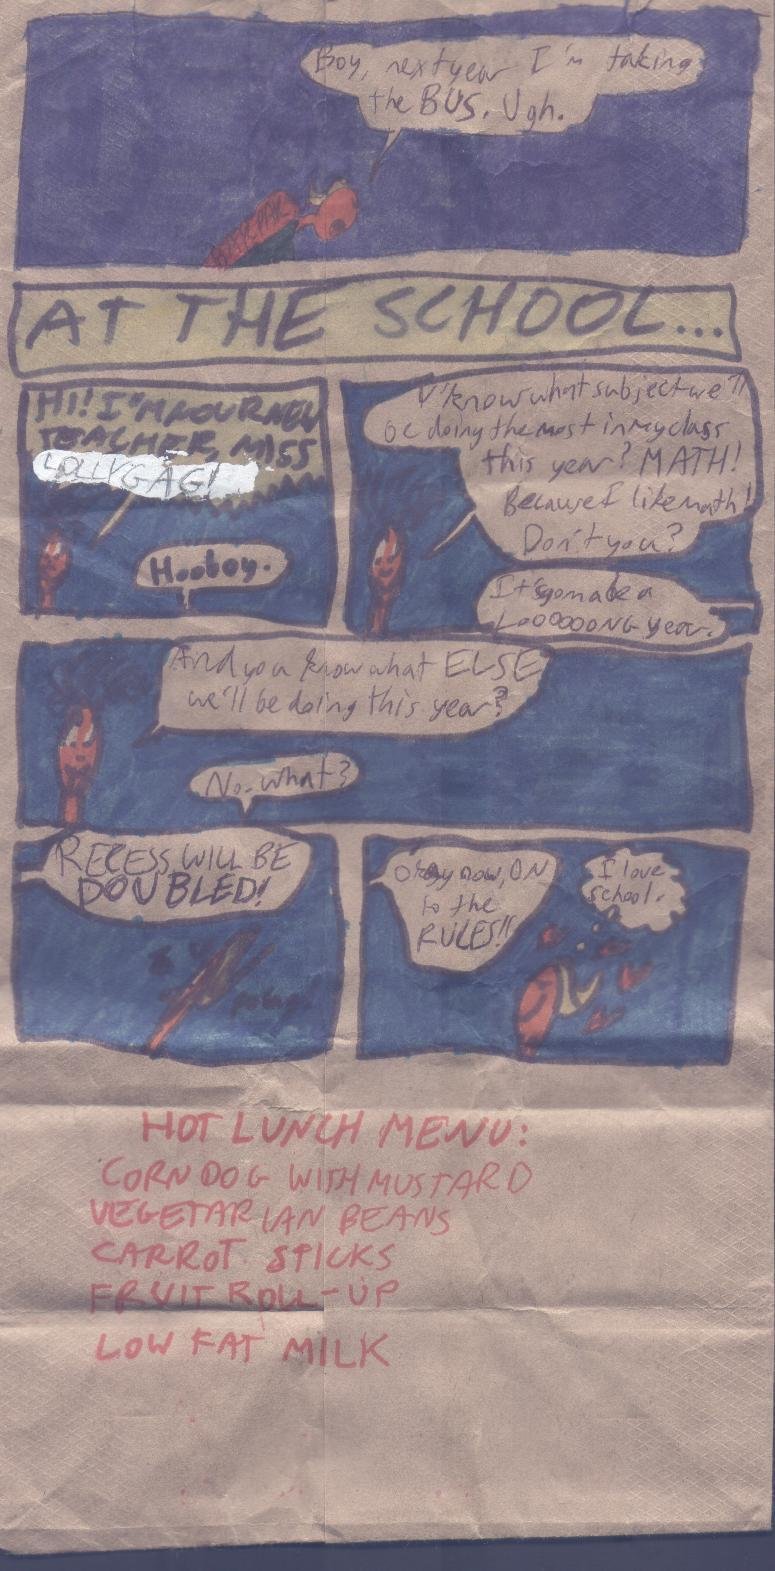 Boy, next year I'm taking
the BUS. Ugh.
AT THE SCHOOL...
HI! I'M YOUR NEW
TEACHER, MISS
LOLLYGAG!
Hooboy.
Y'know what subject we'll
be doing the most in my class
this year? MATH!
Because I like math!
Don't you?
It's gonna be a
LOOOOOONG year.
And you know what ELSE
we'll be doing this year?
No. what?
RECESS WILL BE
DOUBLED!
Okay now, ON
to the
RULES!!
I love
school.
HOT LUNCH MENU:
CORN DOG WITH MUSTARD
VEGETARIAN BEANS
CARROT STICKS
FRUIT ROLL-UP
LOW FAT MILK